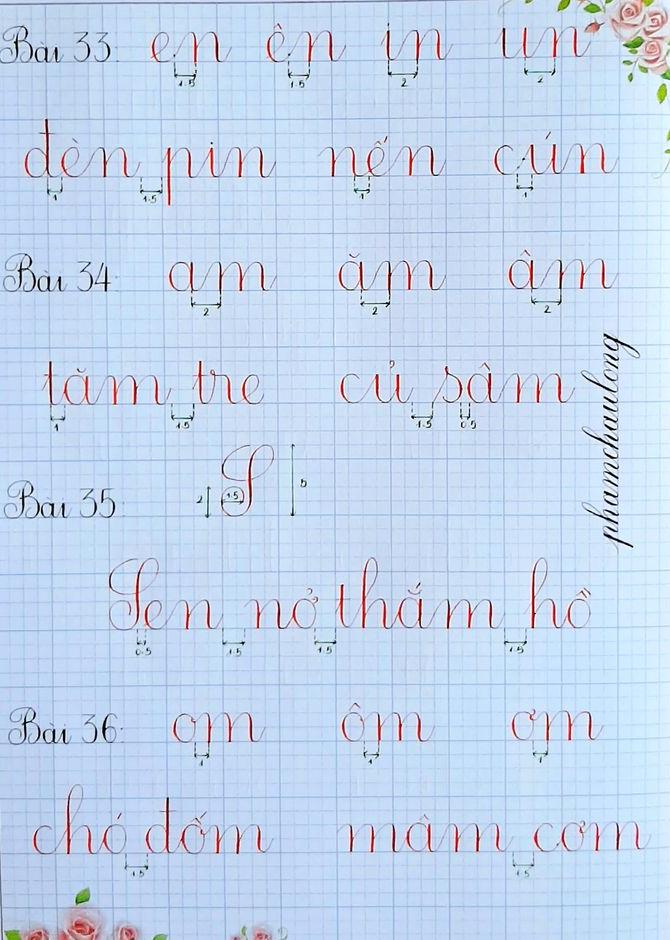 Bài 33: en ên in un
1.5 1.5 2 2
đèn pin nến cún
1 1.5 1 1
Bài 34: am ăm âm
2 2 2
tăm tre củ sâm
1 1.5 1.5 0.5
Bài 35: 2 1.5 S 5
Sen nở thắm hồ
0.5 1.5 1.5 1.5
Bài 36: om ôm ơm
1 1 1
chó đốm mâm cơm
1.5 1.5
phamchaulong